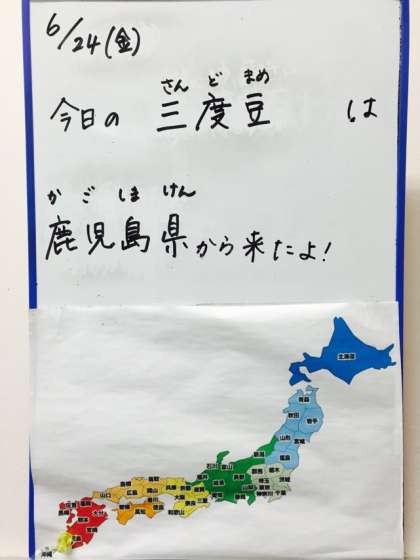 6/24(金)
さんどまめ
今日の 三度豆 は
かごしまけん
鹿児島県から来たよ!
北海道
青森
秋田 岩手
山形 宮城
福島
新潟
石川 富山
栃木
長野
茨城
埼玉
千葉
神奈川
福井
岐阜
鳥取
岡山
広島
山口
兵庫
奈良
三重
和歌山
香川
徳島
福岡
佐賀
長崎
大分
熊本
宮崎
沖縄